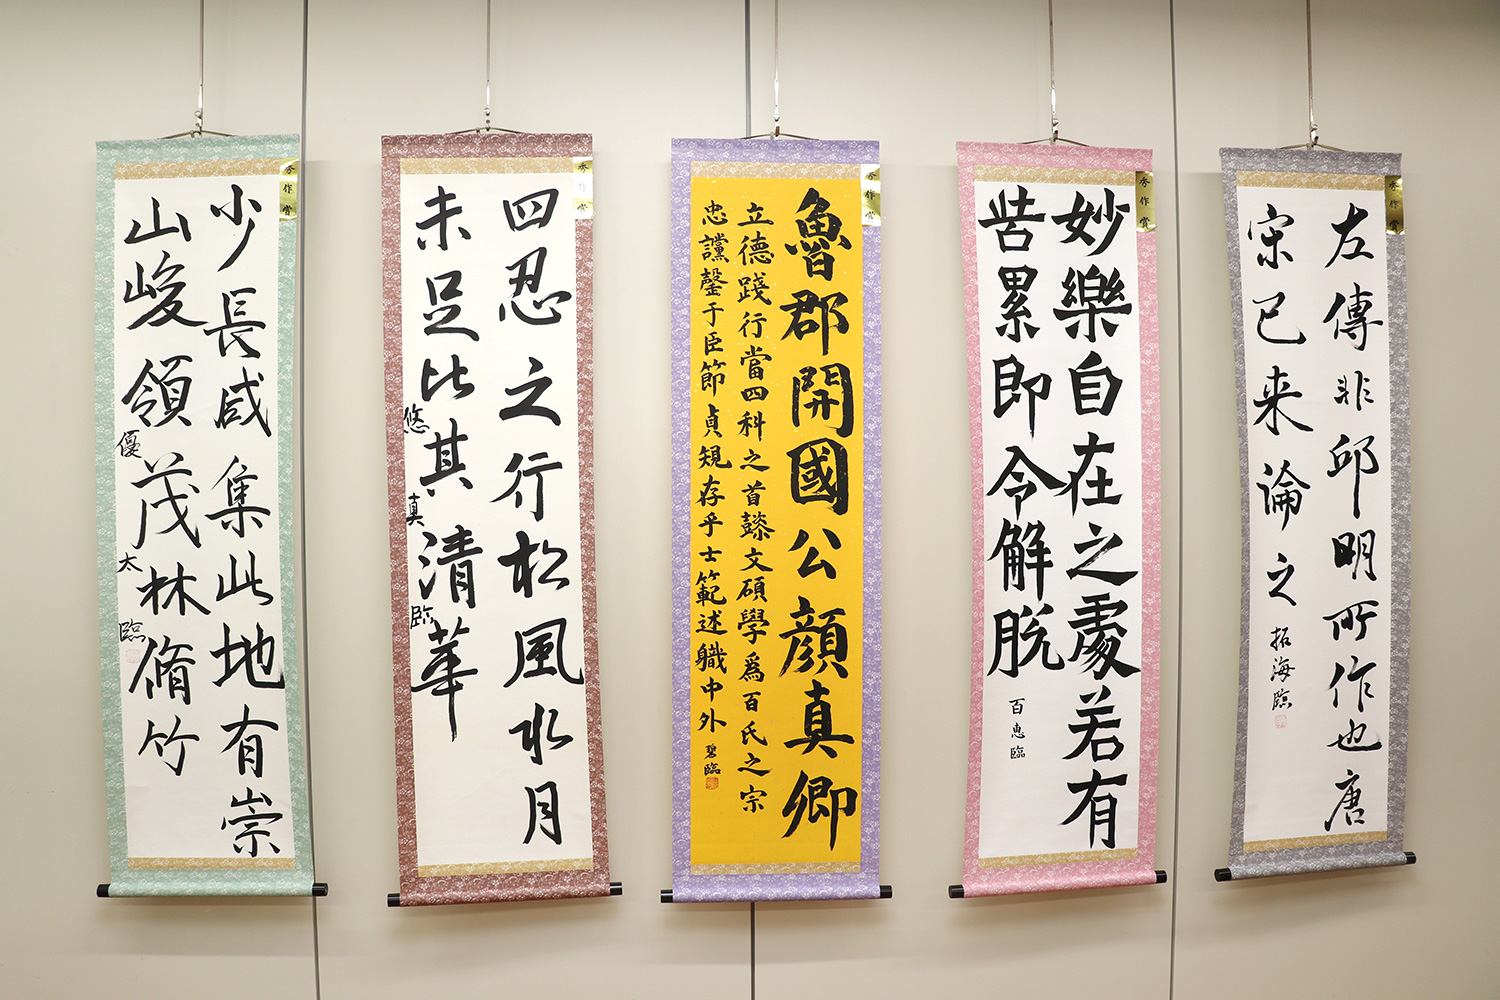 秀作賞
少長咸集此地有崇
山峻領茂林脩竹
優太臨
秀作賞
四忍之行松風水月
未足比其清華
悠真臨
秀作賞
魯郡開國公顔真卿
立德踐行當四科之首懿文碩學為百氏之宗
忠讜罄于臣節貞規存乎士範述職中外
碧臨
秀作賞
妙樂自在之處若有
苦累即令解脱
百恵臨
秀作賞
左傳非邱明所作也唐
宋已来論之
拓海臨